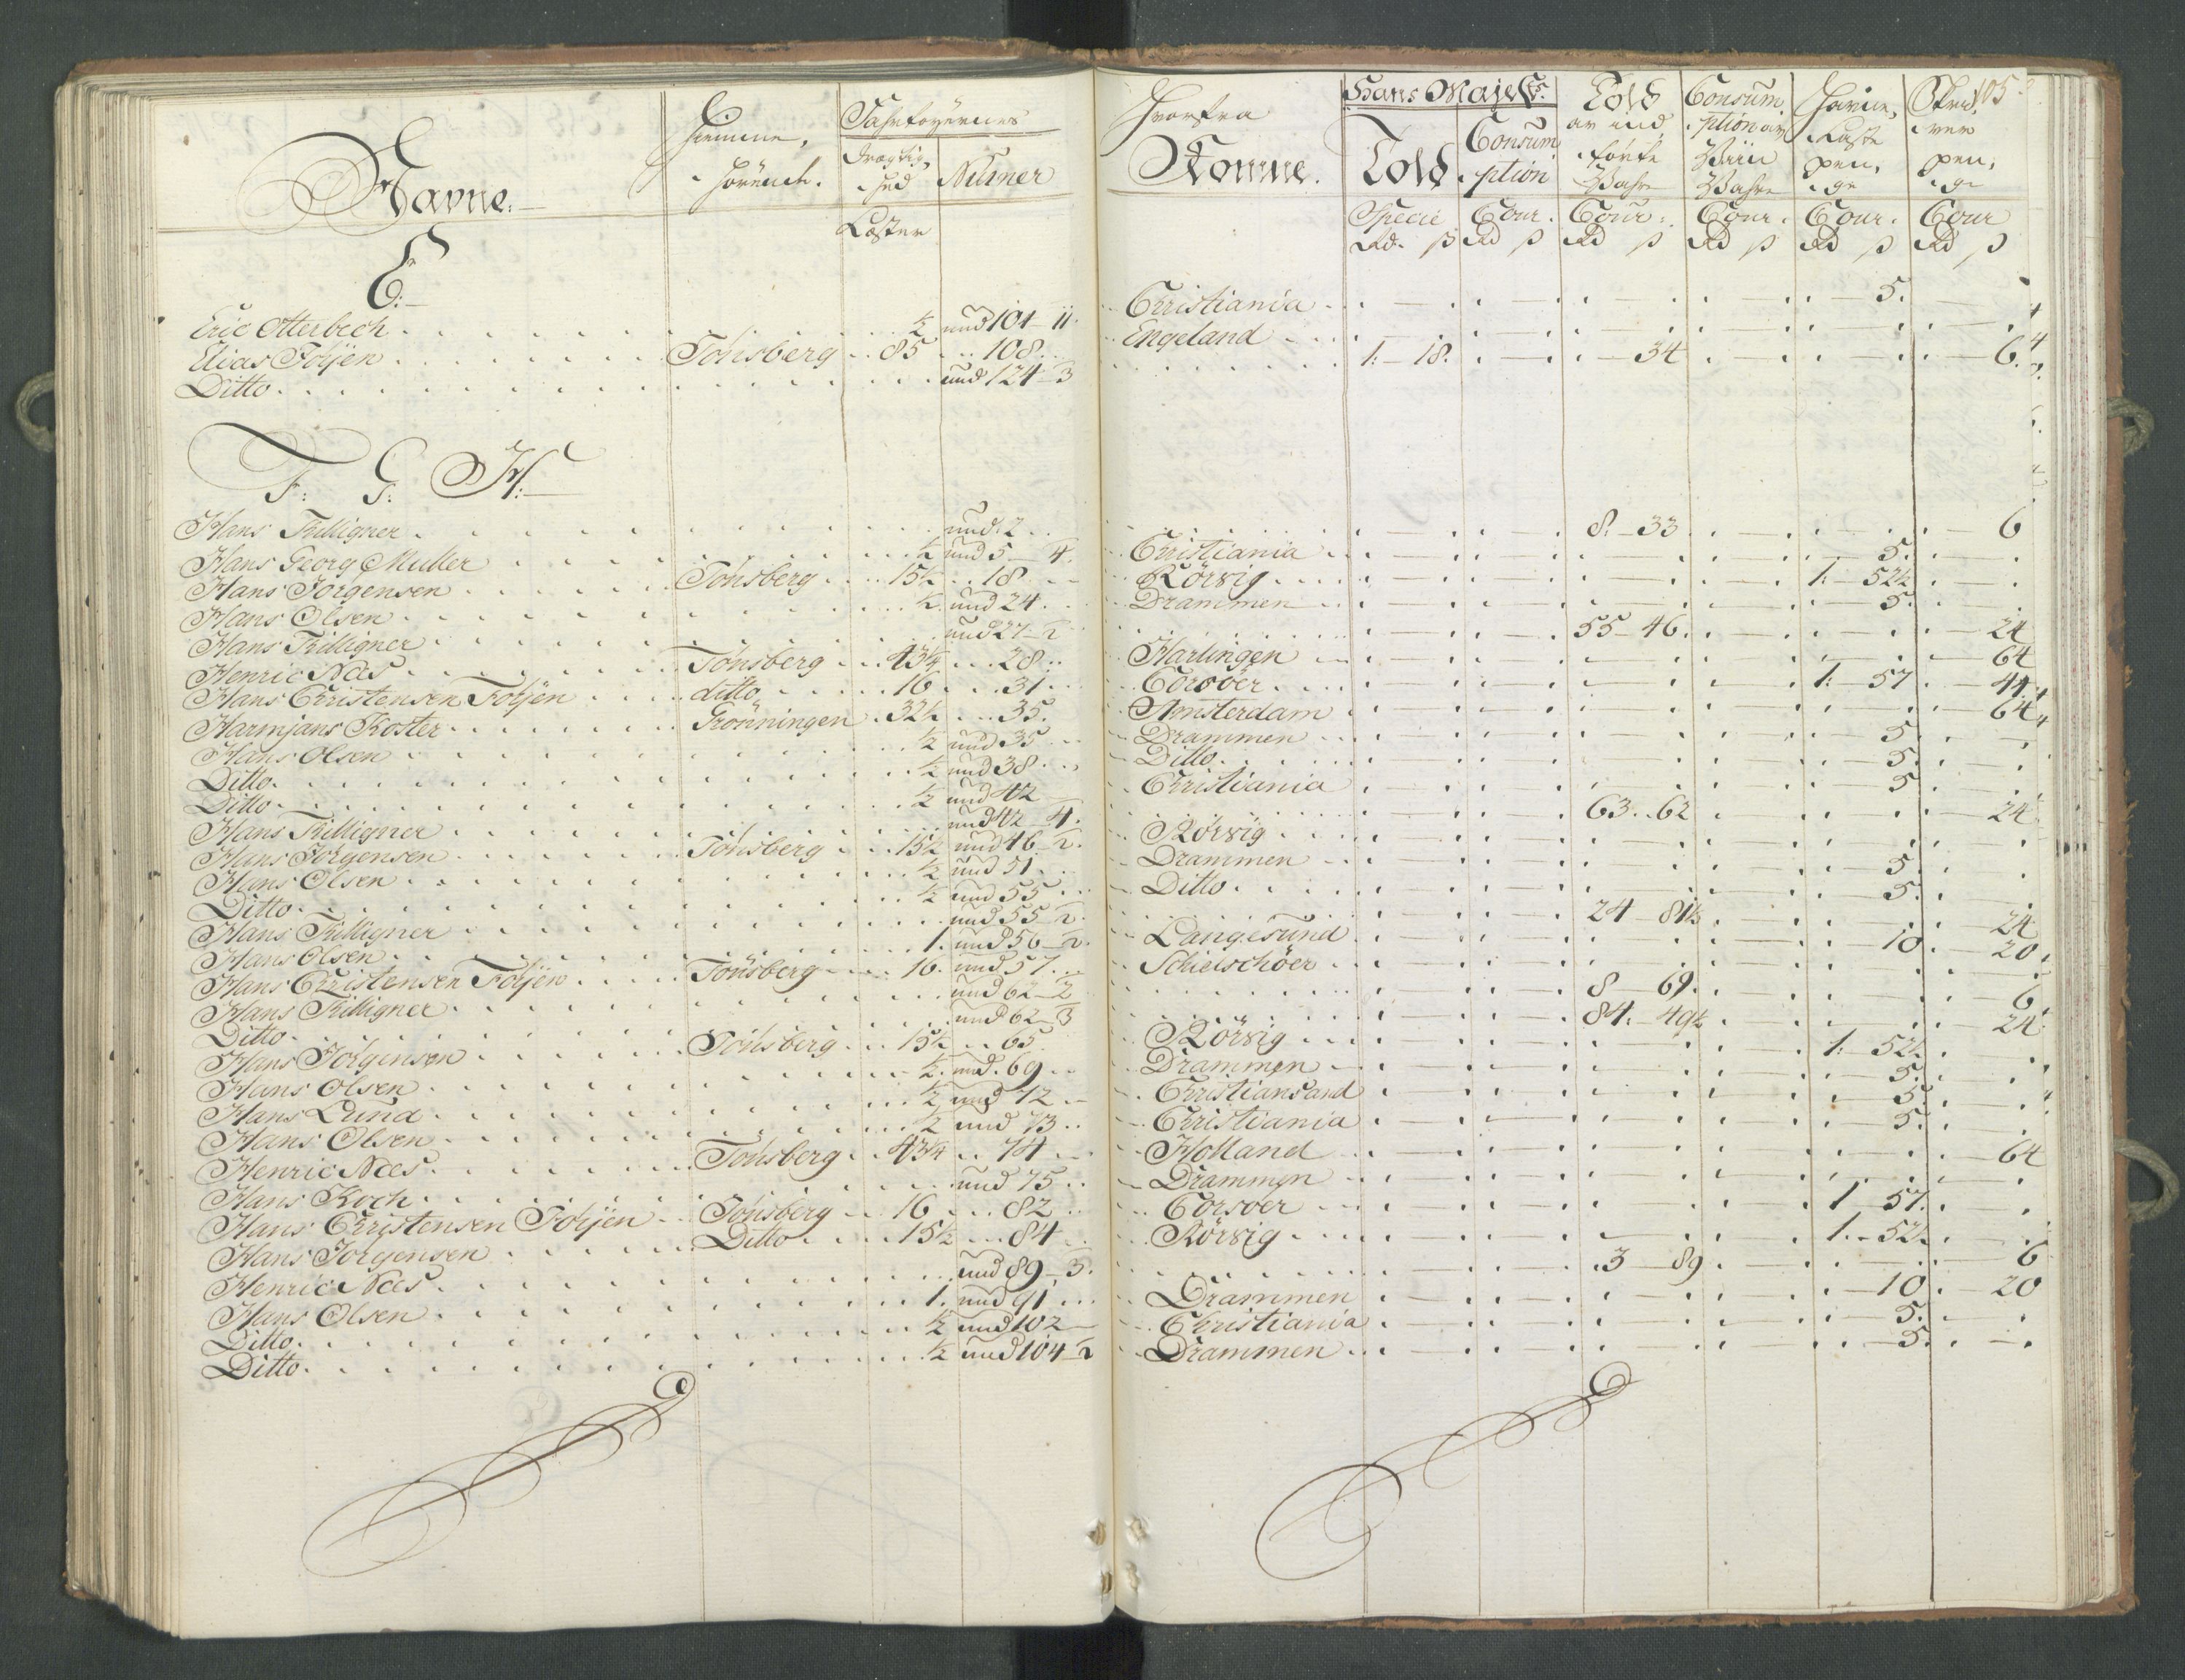 Navne.
Hiemme,
hörende.
Fahrtöyernes
Drægtig,
hed
Numer
Læster
E.
Eric Otterbech ½ und 101 - 11.
Elias Föÿen Tönsberg 85 108
Ditto. und 124 - 3
F: G: H:
Hans Trilligner und 2
Hans Georg Muller ½ und 5 - 4.
Hans Jörgensen Tönsberg 15½ 18
Hans Olsen ½ und 24.
Hans Trilligner und 27 - 2
Henric Næs Tönsberg 43¼ 28
Hans Christensen Föÿen ditto 16 31
Harmjans Koster Grönningen 32½ 35.
Hans Olsen ½ und 35
Ditto. ½ und 38
Ditto ½ und 42
Hans Trilligner und 42 - 4.
Hans Jörgensen Tönsberg 15½ und 46 - 2.
Hans Olsen ½ und 51
Ditto. ½ und 55
Hans Trilligner und 55 - 2.
Hans Olsen 1. und 56 - 2.
Hans Christensen Föÿen Tönsberg 16. und 57
Hans Trilligner und 62 - 2
Ditto. und 62 - 3
Hans Jörgensen Tönsberg 15½ 65
Hans Olsen ½ und 69
Hans Lund ½ und 72
Hans Olsen ½ und 73
Henric Næs Tönsberg 43¼ 74
Hans Koch und 75
Hans Christensen Föÿen Tönsberg 16 82
Hans Jörgensen Ditto 15½ 84
Henric Næs und 89 - 3.
Hans Olsen 1. und 91
Ditto. ½ und 102
Ditto. ½ und 104 - 2
105
Hvorfra
Komme.
Hans Majests.
Told
Consum
ption
Told
av ind
förte
Wahre
Consum
ption av
Wiin
Wahre
Havne,
Laste
pen,
ge
pen,
ge
Specie Cour. Cour. Cour. Cour. Cour
Rd. ß Rd ß Rd ß Rd ß Rd ß Rd ß
Christiania 5.
Engeland
1: - 18. 34 6.
8. - 33 6
Christiania 5.
Rörvig 1: - 52½
Drammen 5.
55 - 46. 24
Harlingen 64
Corsöer 1: - 57 44
Amsterdam 64
Drammen 5.
Ditto 5.
Christiania 5
63. 62 24
Rörvig
Drammen 5.
Ditto. 5.
24 - 81½ 24
Langesund 10. 20
Schielschöer
8 - 69. 6
84. - 49½ 24
Rörvig 1: 52½
Drammen 5.
Christiansand 5.
Christiania 5.
Holland 64
Drammen
Corsoer 1 57.
Rörvig 1. - 52½
3 - 89 6
Drammen 10. 20
Christiania 5.
Drammen 5.